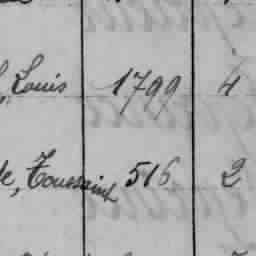 , Louis 1799 4
le, Toussaint 516 2